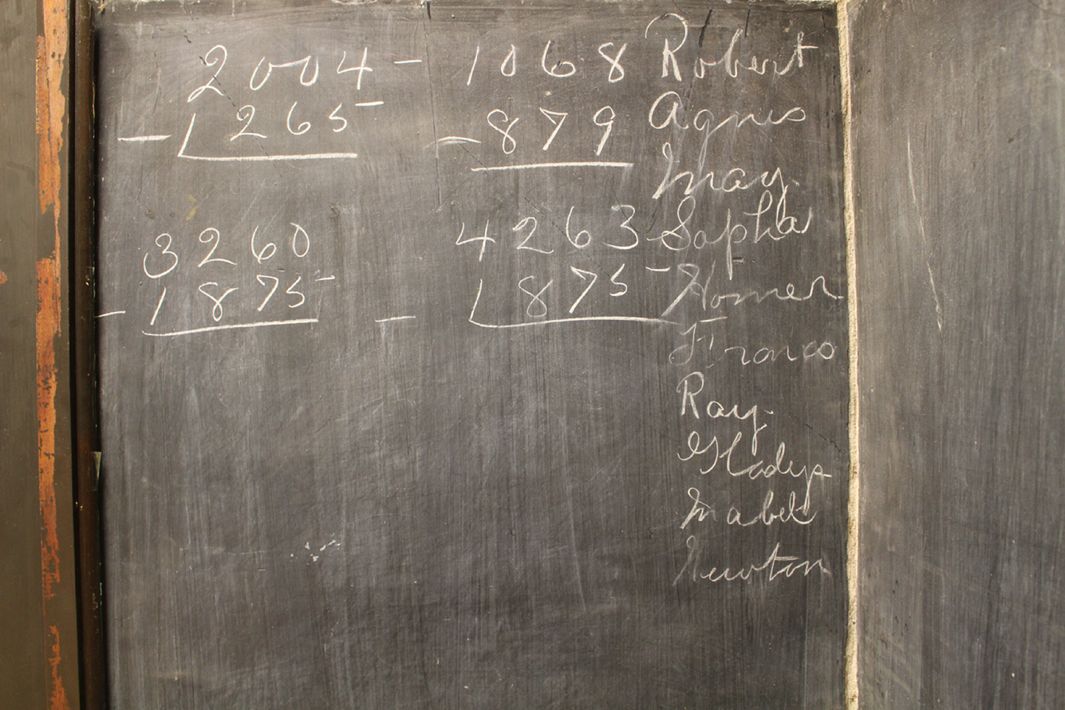 2004 - 1068 Robert
- 1265 - 879 Agnes
May
3260 4263 Sopha
- 1875 - 1875 Homer
Frances
Ray
Gladys
Mabel
Newton